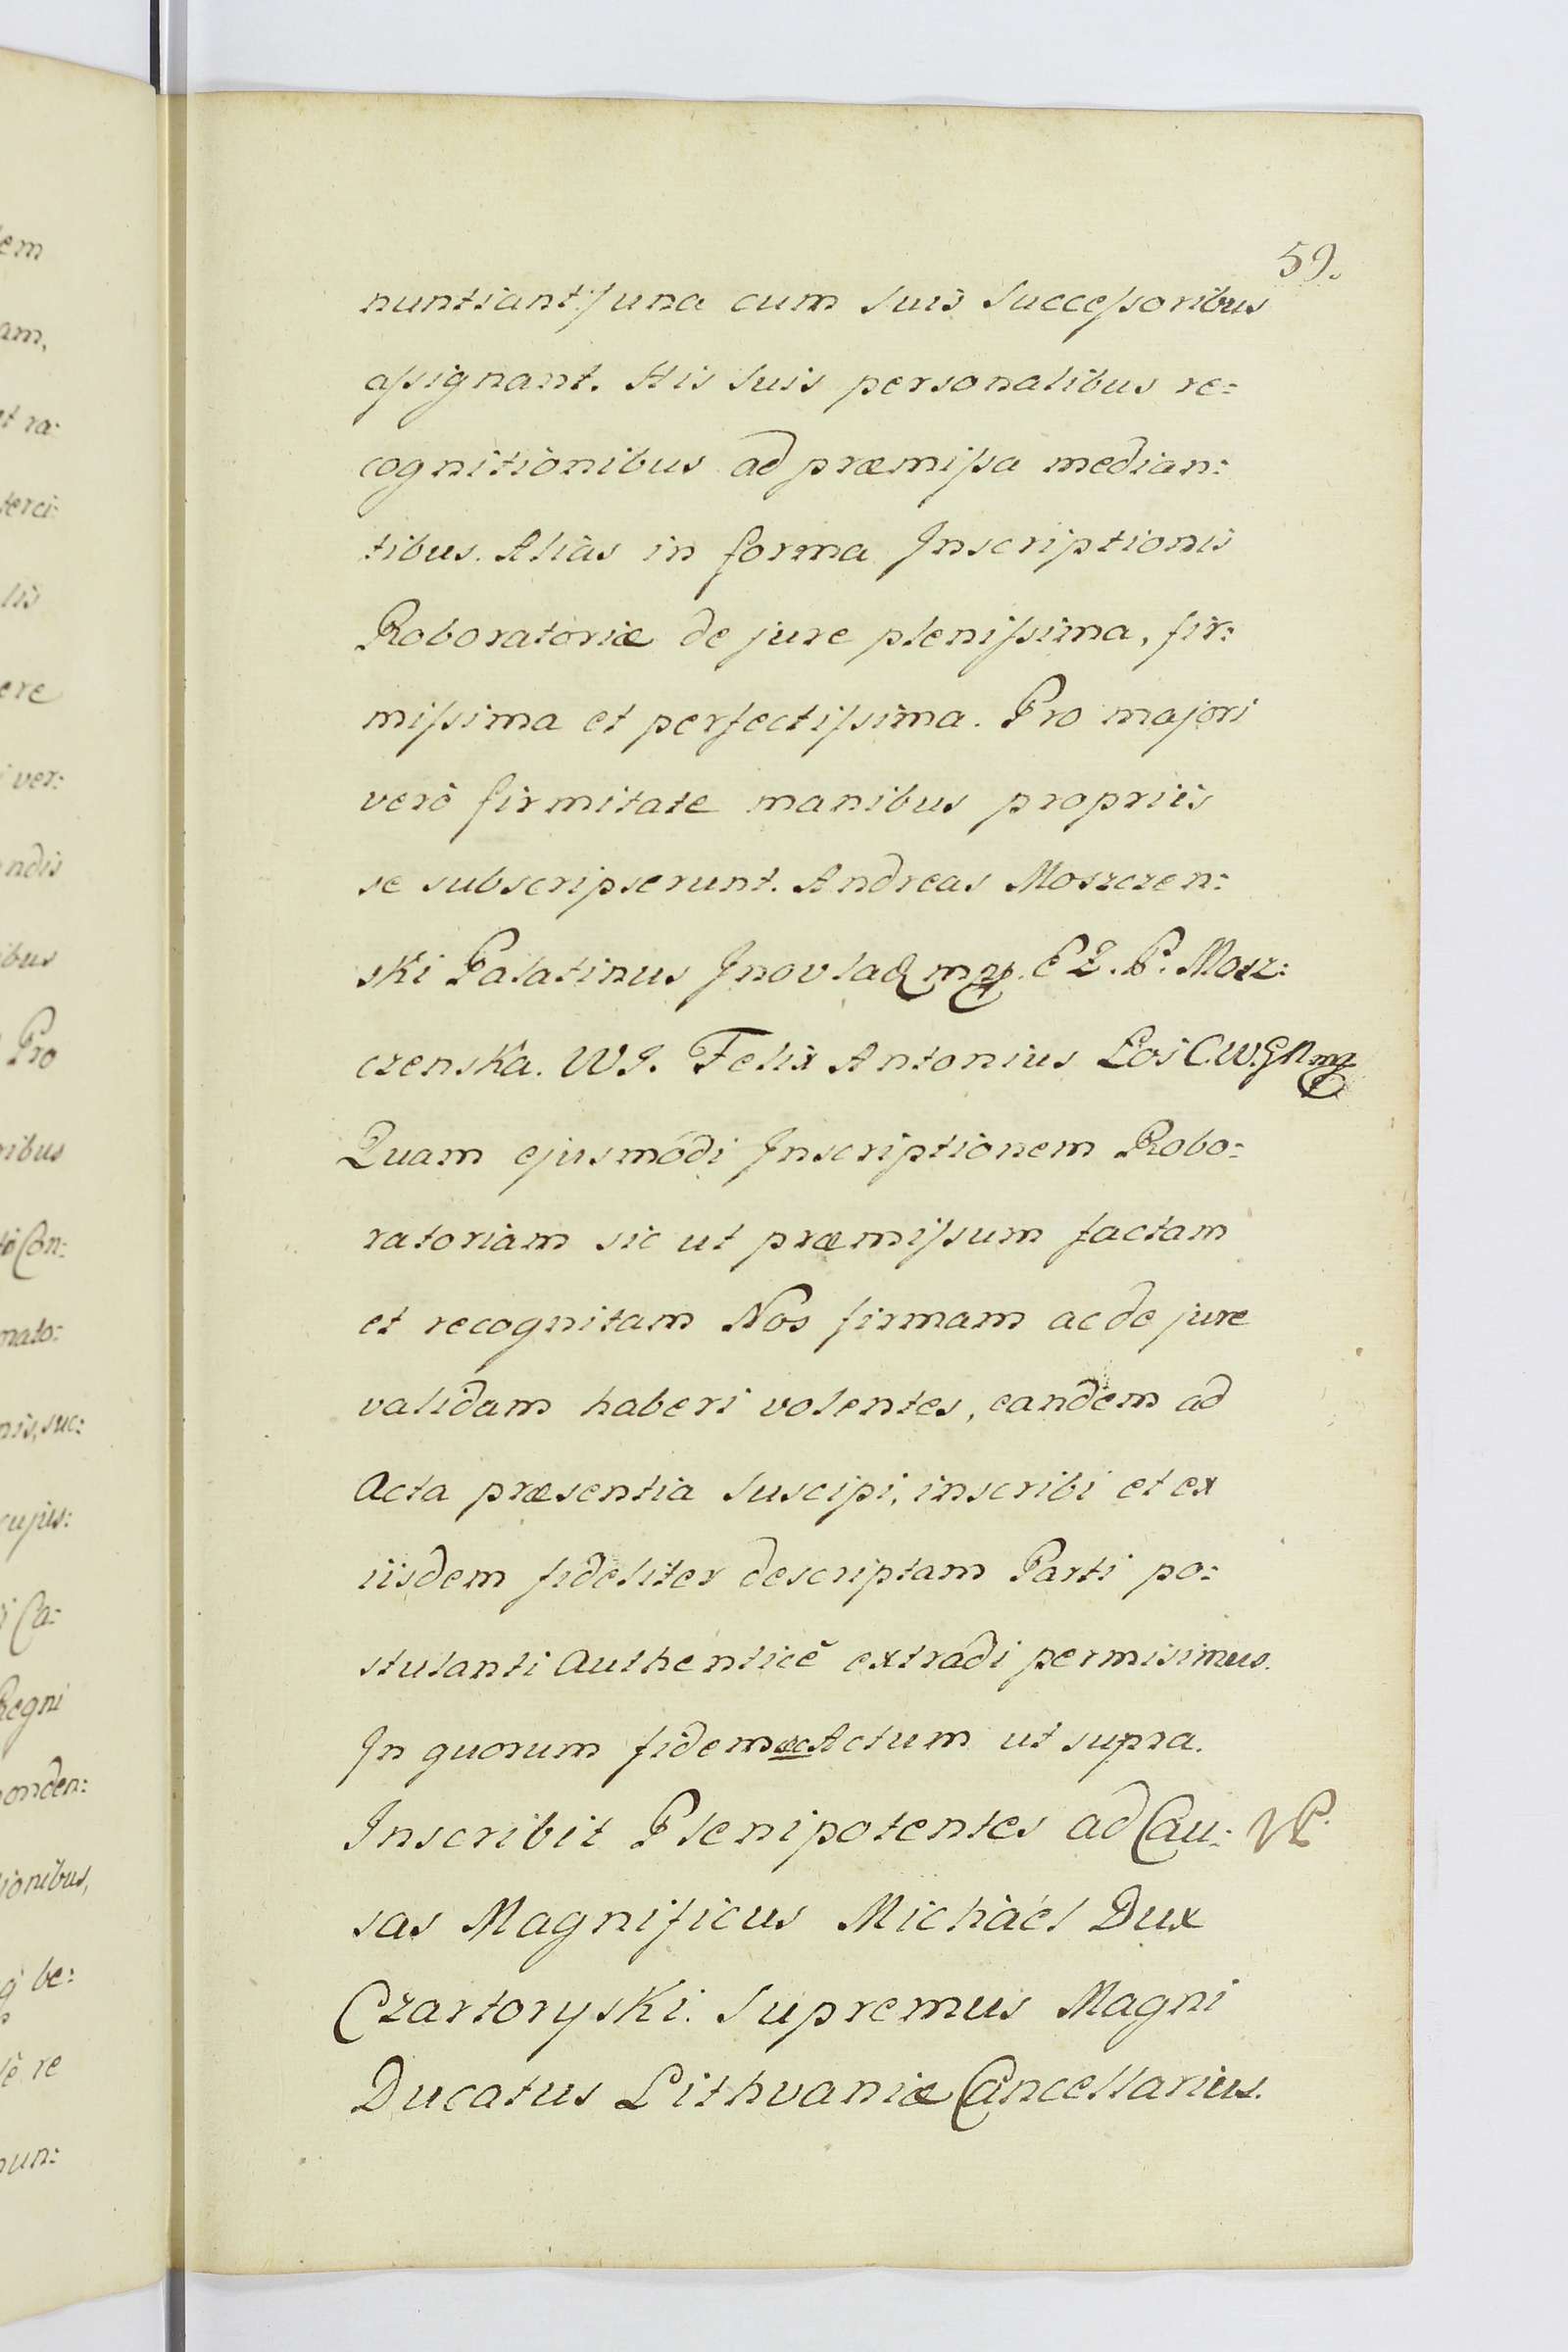 59.
nuntiant) una cum suis Successoribus
assignant. His suis personalibus re:
cognitionibus ad præmissa median:
tibus. Aliàs in forma Inscriptionis
Roboratoriæ de jure plenissima, fir:
missima et perfectissima. Pro majori
verò firmitate manibus propriis
se subscripserunt. Andreas Moszczen:
ski Palatinus Inovlad mp. E Z. P. Mosz:
czenska. W I. Felix Antonius Łoś C.W.G.R mp
Quam ejusmodi Inscriptionem Robo:
ratoriam sic ut præmissum factam
et recognitam Nos firmam ac de jure
validam haberi volentes, eandem ad
Acta præsentia suscipi, inscribi et ex
iisdem fideliter descriptam Parti po:
stulanti Authenticè extradi permisimus.
In quorum fidem Actum ut supra.
Inscribit Plenipotentes ad Cau:
sas Magnificus Michaél Dux
Czartoryski. Supremus Magni
Ducatus Lithvaniæ Cancellarius.
em
am,
et ra:
terci:
lis
ere
ver:
endis
ibus
Pro
nibus
Con:
nato:
nis, suc:
cujus:
Ca:
Regni
onden:
ionibus,
be:
re
nun: